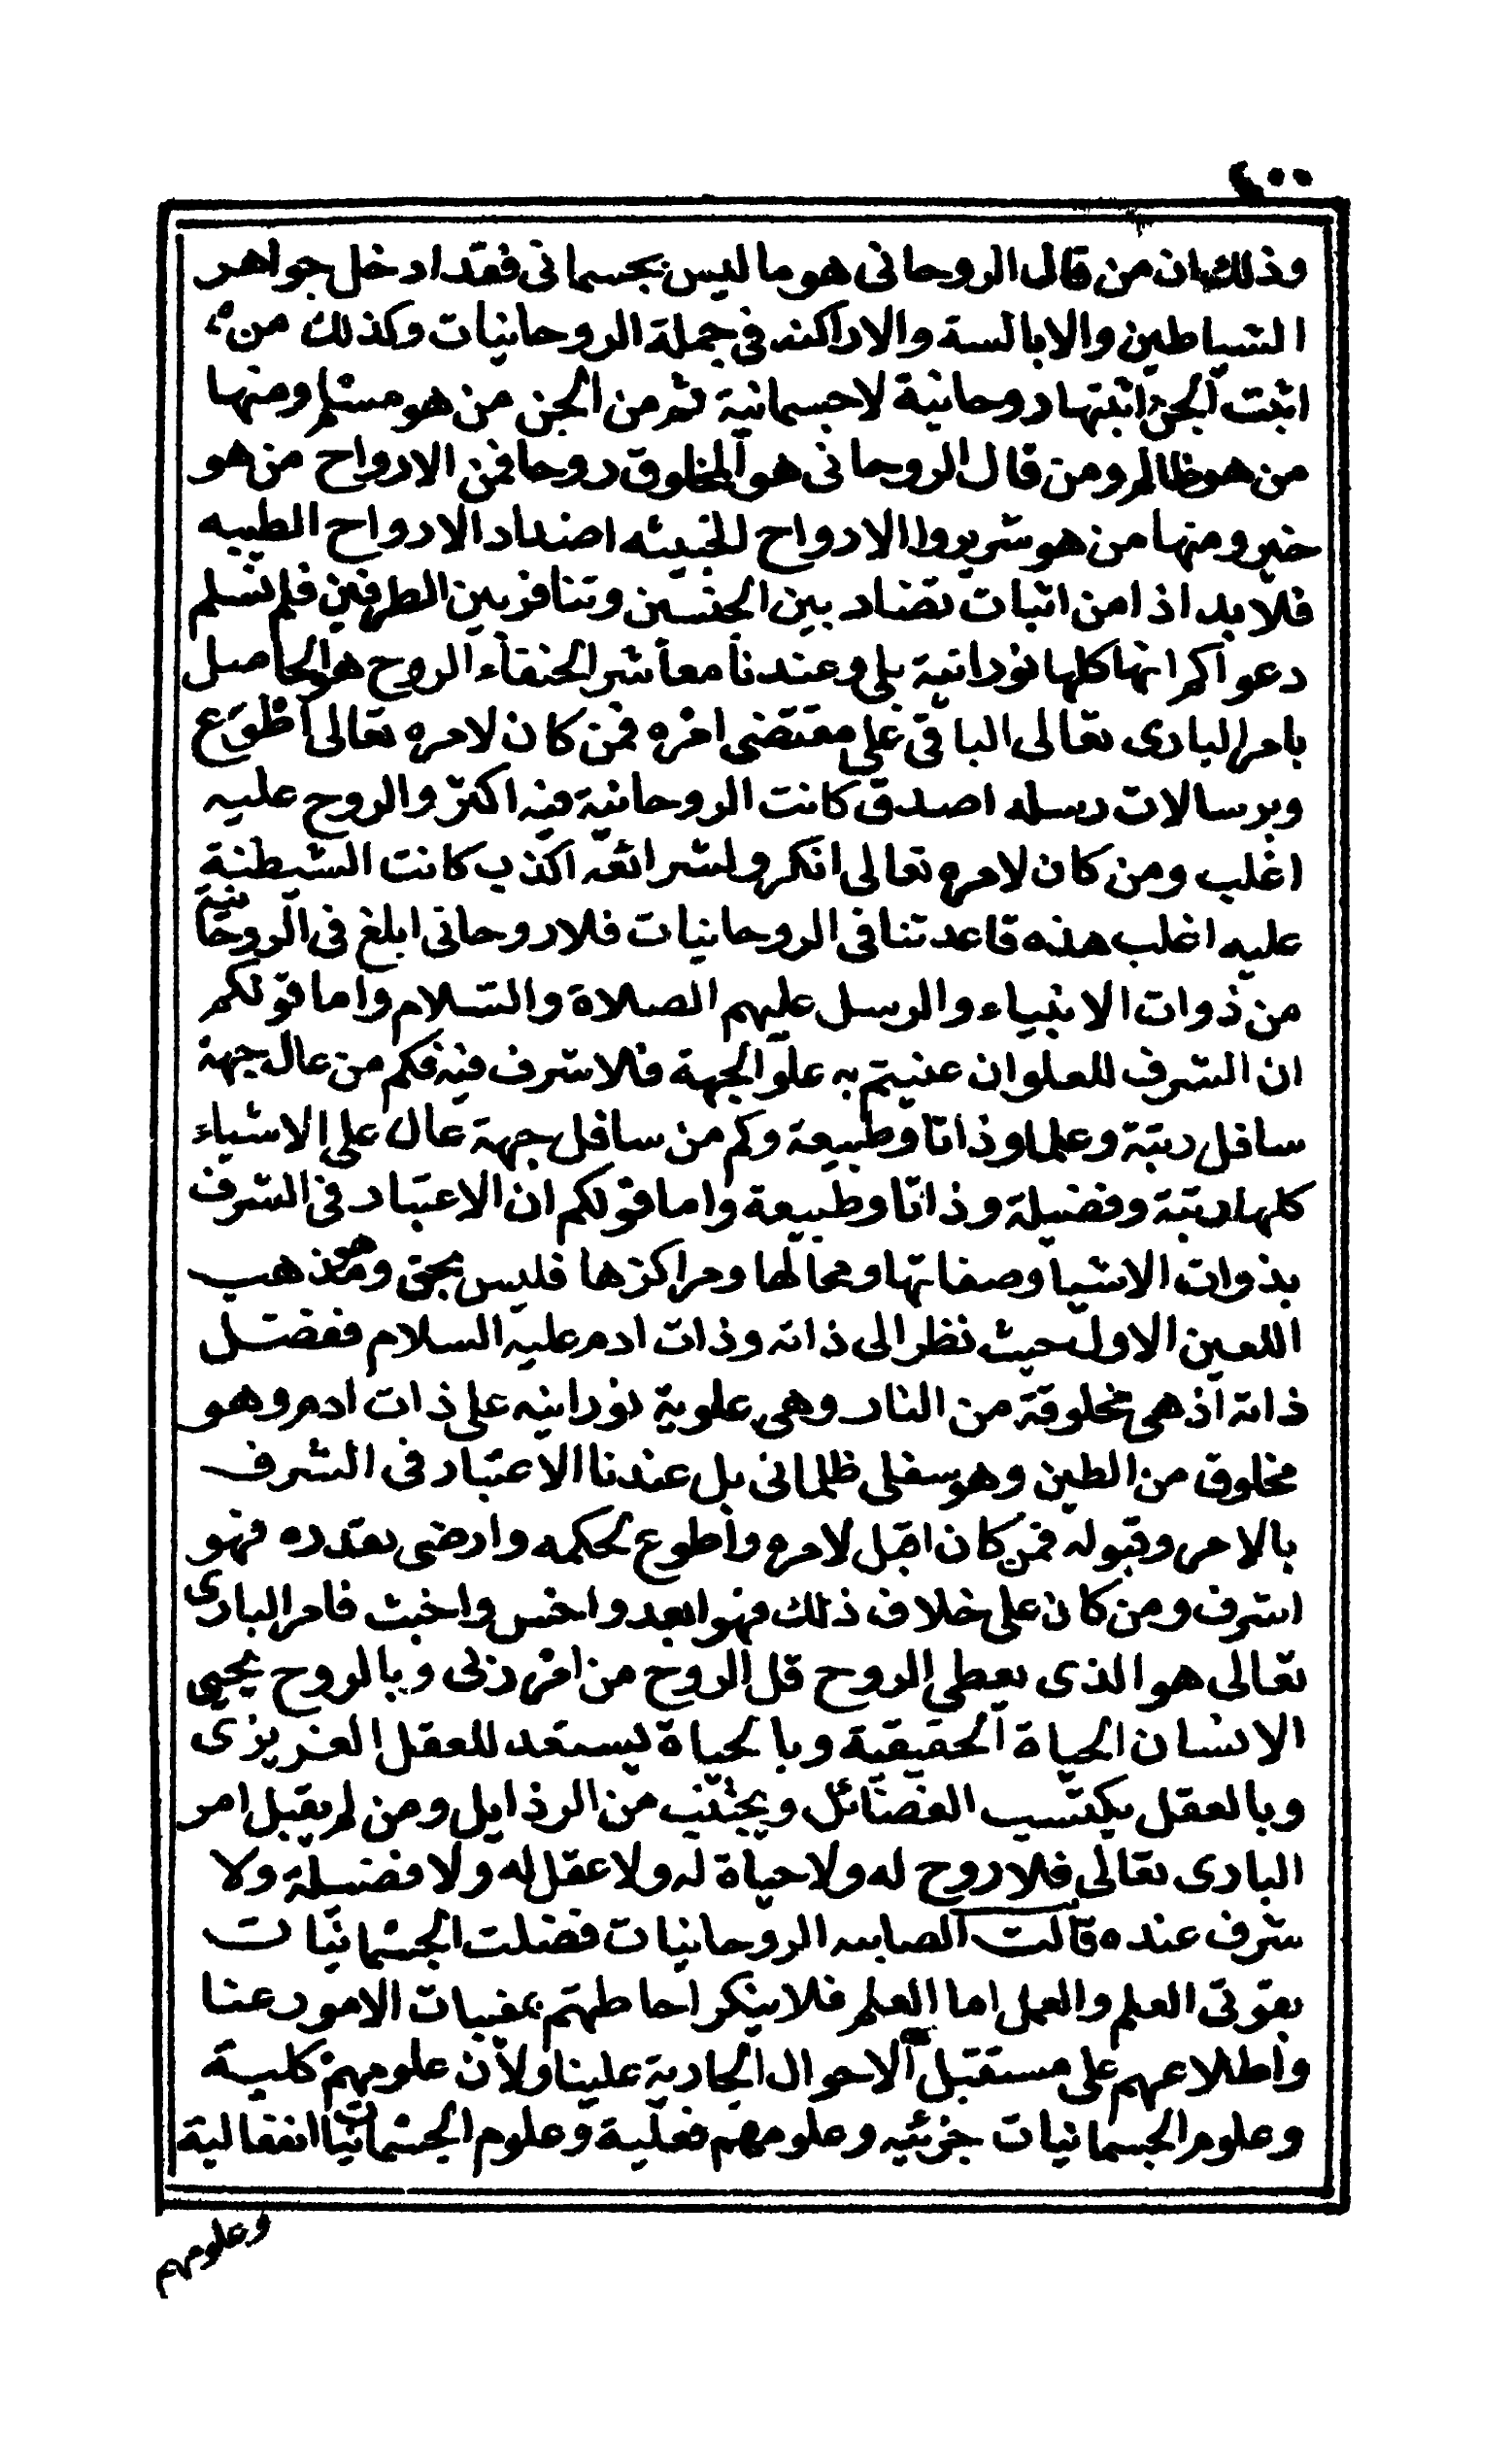 ٤٠٠
وذلك ان من قال الروحانى هو ما ليس بجسمانى فقد ادخل جواهر
الشياطين والابالسة والاراكنه فى جملة الروحانيات وكذلك من
اثبت الجن اثبتها روحانية لا جسمانية ثم من الجن من هو مسلم ومنها
من هو ظالم ومن قال الروحانى هو المخلوق روحا فمن الارواح من هو
خير ومنها من هو شرير والارواح الخبيثه اضداد الارواح الطيبه
فلا بد اذا من اثبات تضاد بين الجنسين وتنافر بين الطرفين فلم نسلم
دعواكم انها كلها نورانية بلى وعندنا معاشر الحنفاء الروح هو الحاصل
بامر البارى تعالى الباقى على مقتضى امره فمن كان لامره تعالى اطوع
وبرسالات رسله اصدق كانت الروحانية فيه اكثر والروح عليه
اغلب ومن كان لامره تعالى انكر ولشرائعه اكذب كانت الشيطنة
عليه اغلب هذه قاعدتنا فى الروحانيات فلا روحانى ابلغ فى الروحانية
من ذوات الانبياء والرسل عليهم الصلاة والسلام واما قولكم
ان الشرف للعلو ان عنيتم به علو الجهة فلا شرف فيه فكم من عال جهة
سافل رتبة وعلما وذاتا وطبيعة وكم من سافل جهة عال على الاشياء
كلها رتبة وفضيلة وذاتا وطبيعة واما قولكم ان الاعتبار فى الشرف
بذوات الاشيا وصفاتها ومحالها ومراكزها فليس بحق وهو مذهب
اللعين الاول حيث نظر الى ذاته وذات ادم عليه السلام ففضل
ذاته اذ هى مخلوقة من النار وهى علوية نورانيه على ذات ادم وهو
مخلوق من الطين وهو سفلى ظلمانى بل عندنا الاعتبار فى الشرف
بالامر وقبوله فمن كان اقبل لامره واطوع لحكمه وارضى بقدره فهو
اشرف ومن كان على خلاف ذلك فهو ابعد واخس واخبث فامر البارى
تعالى هو الذى يعطى الروح قل الروح من امر ربى وبالروح يحيى
الانسان الحياة الحقيقية وبالحياة يستعد للعقل الغريزى
وبالعقل يكتسب الفضائل ويجتنب من الرذايل ومن لم يقبل امر
البارى تعالى فلا روح له ولا حياة له ولا عقل له ولا فضيلة ولا
شرف عنده قالت الصابيه الروحانيات فضلت الجسمانيات
بقوتى العلم والعمل اما العلم فلا ينكر احاطتهم بمغيبات الامور عنا
واطلاعهم على مستقبل الاحوال الجارية علينا ولان علومهم كلية
وعلوم الجسمانيات جزئيه وعلومهم فعلية وعلوم الجسمانيات انفعالية
وعلومهم